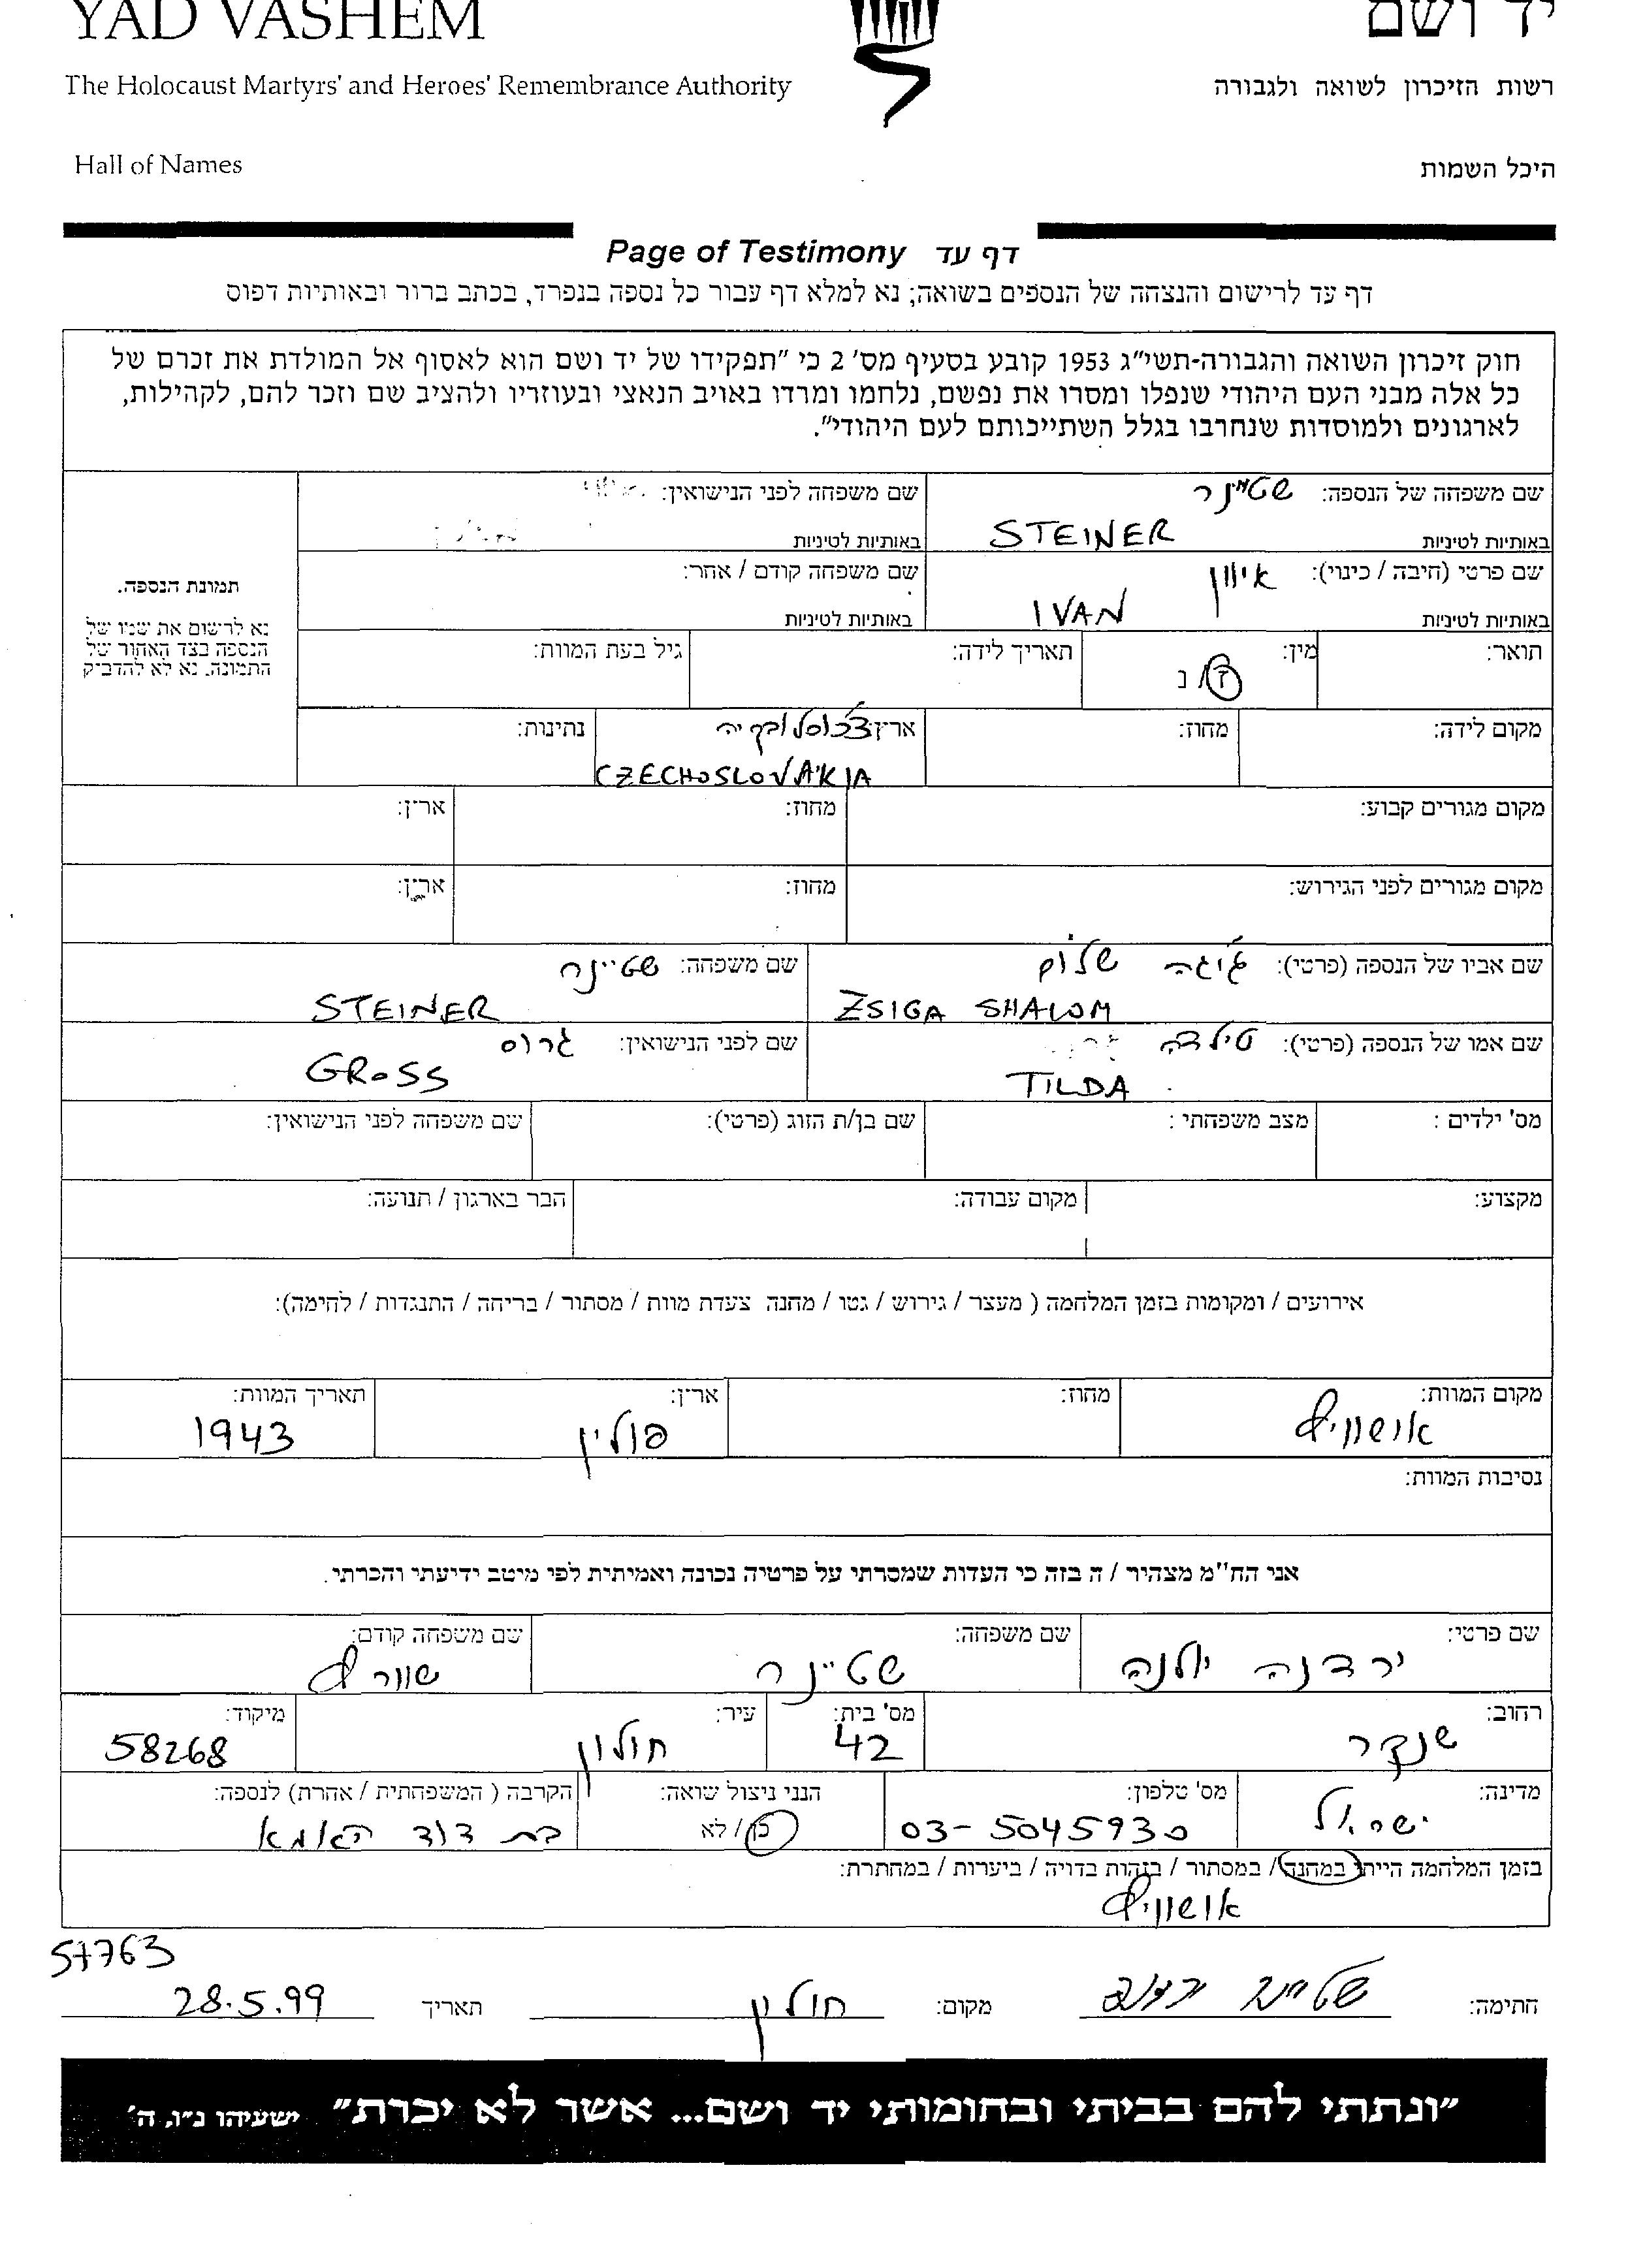 YAD VASHEM יד ושם
The Holocaust Martyrs' and Heroes' Remembrance Authority רשות הזיכרון לשואה ולגבורה
Hall of Names היכל השמות
Page of Testimony דף עד
דף עד לרישום והנצחה של הנספים בשואה; נא למלא דף עבור כל נספה בנפרד, בכתב ברור ובאותיות דפוס
חוק זיכרון השואה והגבורה-תשי"ג 1953 קובע בסעיף מס' 2 כי "תפקידו של יד ושם הוא לאסוף אל המולדת את זכרם של
כל אלה מבני העם היהודי שנפלו ומסרו את נפשם, נלחמו ומרדו באויב הנאצי ובעוזריו ולהציב שם וזכר להם, לקהילות,
לארגונים ולמוסדות שנחרבו בגלל השתייכותם לעם היהודי".
שם משפחה של הנספה: שטיינר שם משפחה לפני הנישואין:
באותיות לטיניות STEINER באותיות לטיניות
שם פרטי (חיבה / כינוי): איוון שם משפחה קודם / אחר:
באותיות לטיניות IVAN באותיות לטיניות
תמונת הנספה.
נא לרשום את שמו של
הנספה בצד האחור של
התמונה. נא לא להדביק
תואר: מין: ז/נ תאריך לידה: גיל בעת המוות:
מקום לידה: מחוז: ארץ: צ'כוסלובקיה נתינות:
CZECHOSLOVAKIA
מקום מגורים קבוע: מחוז: ארץ:
מקום מגורים לפני הגירוש: מחוז: ארץ:
שם אביו של הנספה (פרטי): ז'יגה שלום שם משפחה: שטיינר
ZSIGA SHALOM STEINER
שם אמו של הנספה (פרטי): טילדה שם לפני הנישואין: גרוס
TILDA GROSS
מס' ילדים : מצב משפחתי : שם בן/ת הזוג (פרטי): שם משפחה לפני הנישואין:
מקצוע: מקום עבודה: חבר בארגון / תנועה:
אירועים / ומקומות בזמן המלחמה ( מעצר / גירוש / גטו / מחנה צעדת מוות / מסתור / בריחה / התנגדות / לחימה):
מקום המוות: מחוז: ארץ: תאריך המוות:
אושוויץ פולין 1943
נסיבות המוות:
אני הח"מ מצהיר / ה בזה כי העדות שמסרתי על פרטיה נכונה ואמיתית לפי מיטב ידיעתי והכרתי.
שם פרטי: שם משפחה: שם משפחה קודם:
ירדנה יולנה שטיינר שוורץ
רחוב: מס' בית: עיר: מיקוד:
שנקר 42 חולון 58268
מדינה: מס' טלפון: הנני ניצול שואה: הקרבה ( המשפחתית / אחרת) לנספה:
ישראל 03-5045930 כן / לא בת דוד האמא
בזמן המלחמה הייתי במחנה / במסתור / בזהות בדויה / ביערות / במחתרת:
אושוויץ
57763
חתימה: שטיינר ירדנה מקום: חולון תאריך 28.5.99
"ונתתי להם בביתי ובחומותי יד ושם... אשר לא יכרת" ישעיהו נ"ו, ה'